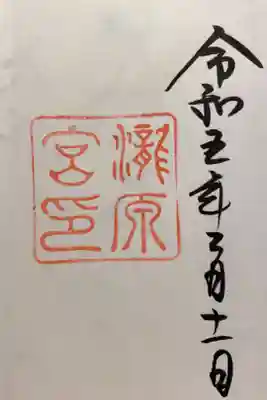 令和五年二月十一日
瀧原
宮印